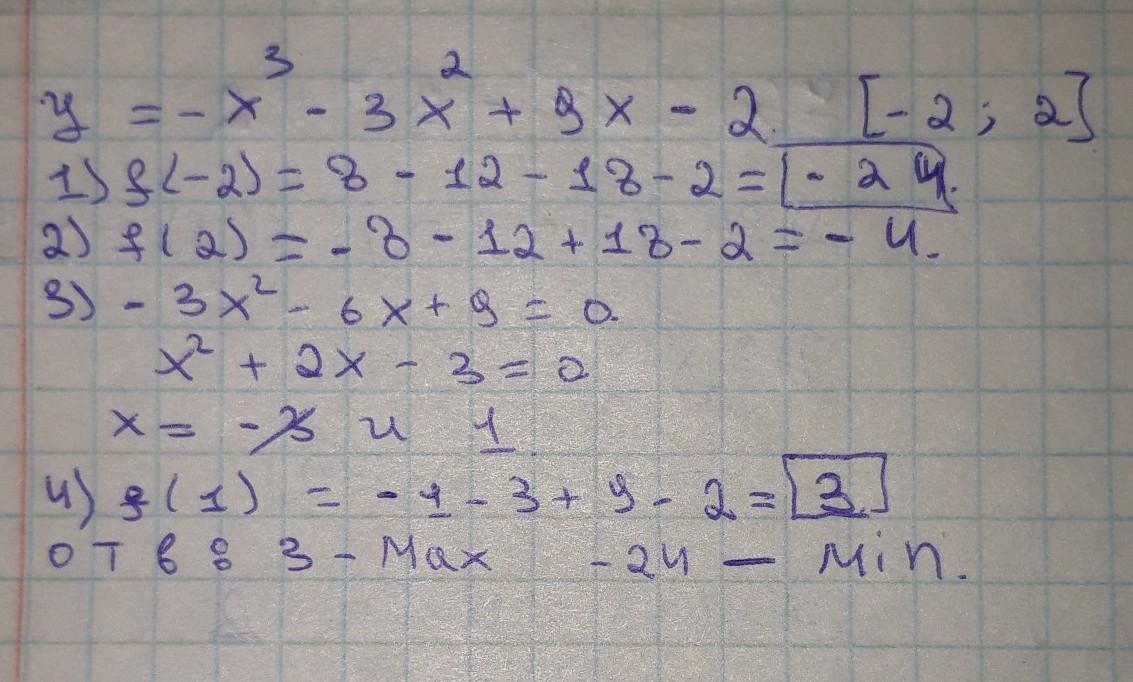 y = -x³ - 3x² + 9x - 2. [-2; 2]
1) f(-2) = 8 - 12 - 18 - 2 = -24.
2) f(2) = -8 - 12 + 18 - 2 = -4.
3) -3x² - 6x + 9 = 0.
x² + 2x - 3 = 0
x = -3 и 1
4) f(1) = -1 - 3 + 9 - 2 = 3.
отв: 3 - Max -24 — Min.